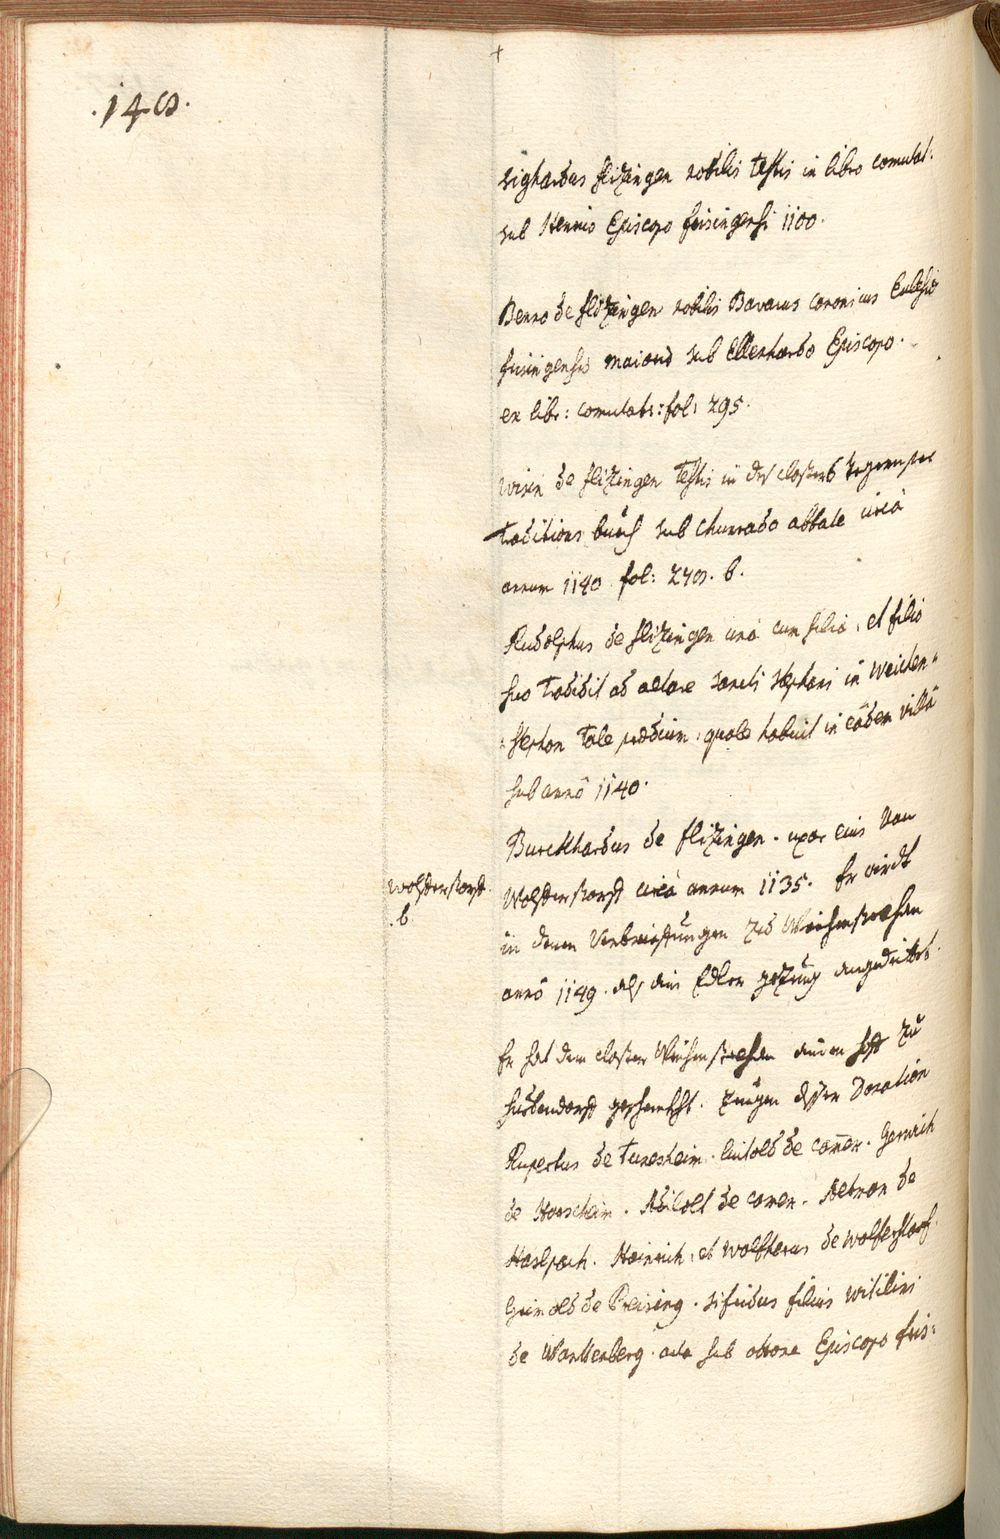 .148.
Sighardus flizingen nobilis testis in libro comutat.
sub Henrico Episcopo frisingensi 1100.
Benno de flizingen nobilis Bavarus canonicus Ecclesiæ
frisingensis maioris sub Ellenhardo Episcopo.
ex libr: comutat: fol: 295.
de flizingen testis in des closters Tegernsee
traditions buech sub Chunrado abbate circà
annum 1140 fol: b.
Rudolphus de flizingen unà cum filia, et filio
suo tradidit ad altare sancti Stephani in Weichen=
=stephan tale prædium, quale habuit in eâdem villâ
sub annô 1140.
Burckhardus de flizingen. uxor eius von
Wolfferstorff circà annum 1135. Er wirdt
in denen zu Weichenstephan
annô 1149. als ein Edler gezeug angedeittet.
Wolfferstorff
.b.
Er hat dem closter Weichenstephan einen hoff zu
geschenkht. zeugen diser Donation
Rupertus de Turesheim. Luitold de camer. Gerwich
de Horscheim. Adilolt de camer. Altman de
Haslpach. Heinrich, et Wolftherus de Wolfferstorf
Grimold de Preising. Sifridus filius Witilini
de Warttenberg. acta sub ottone Episcopo fris=